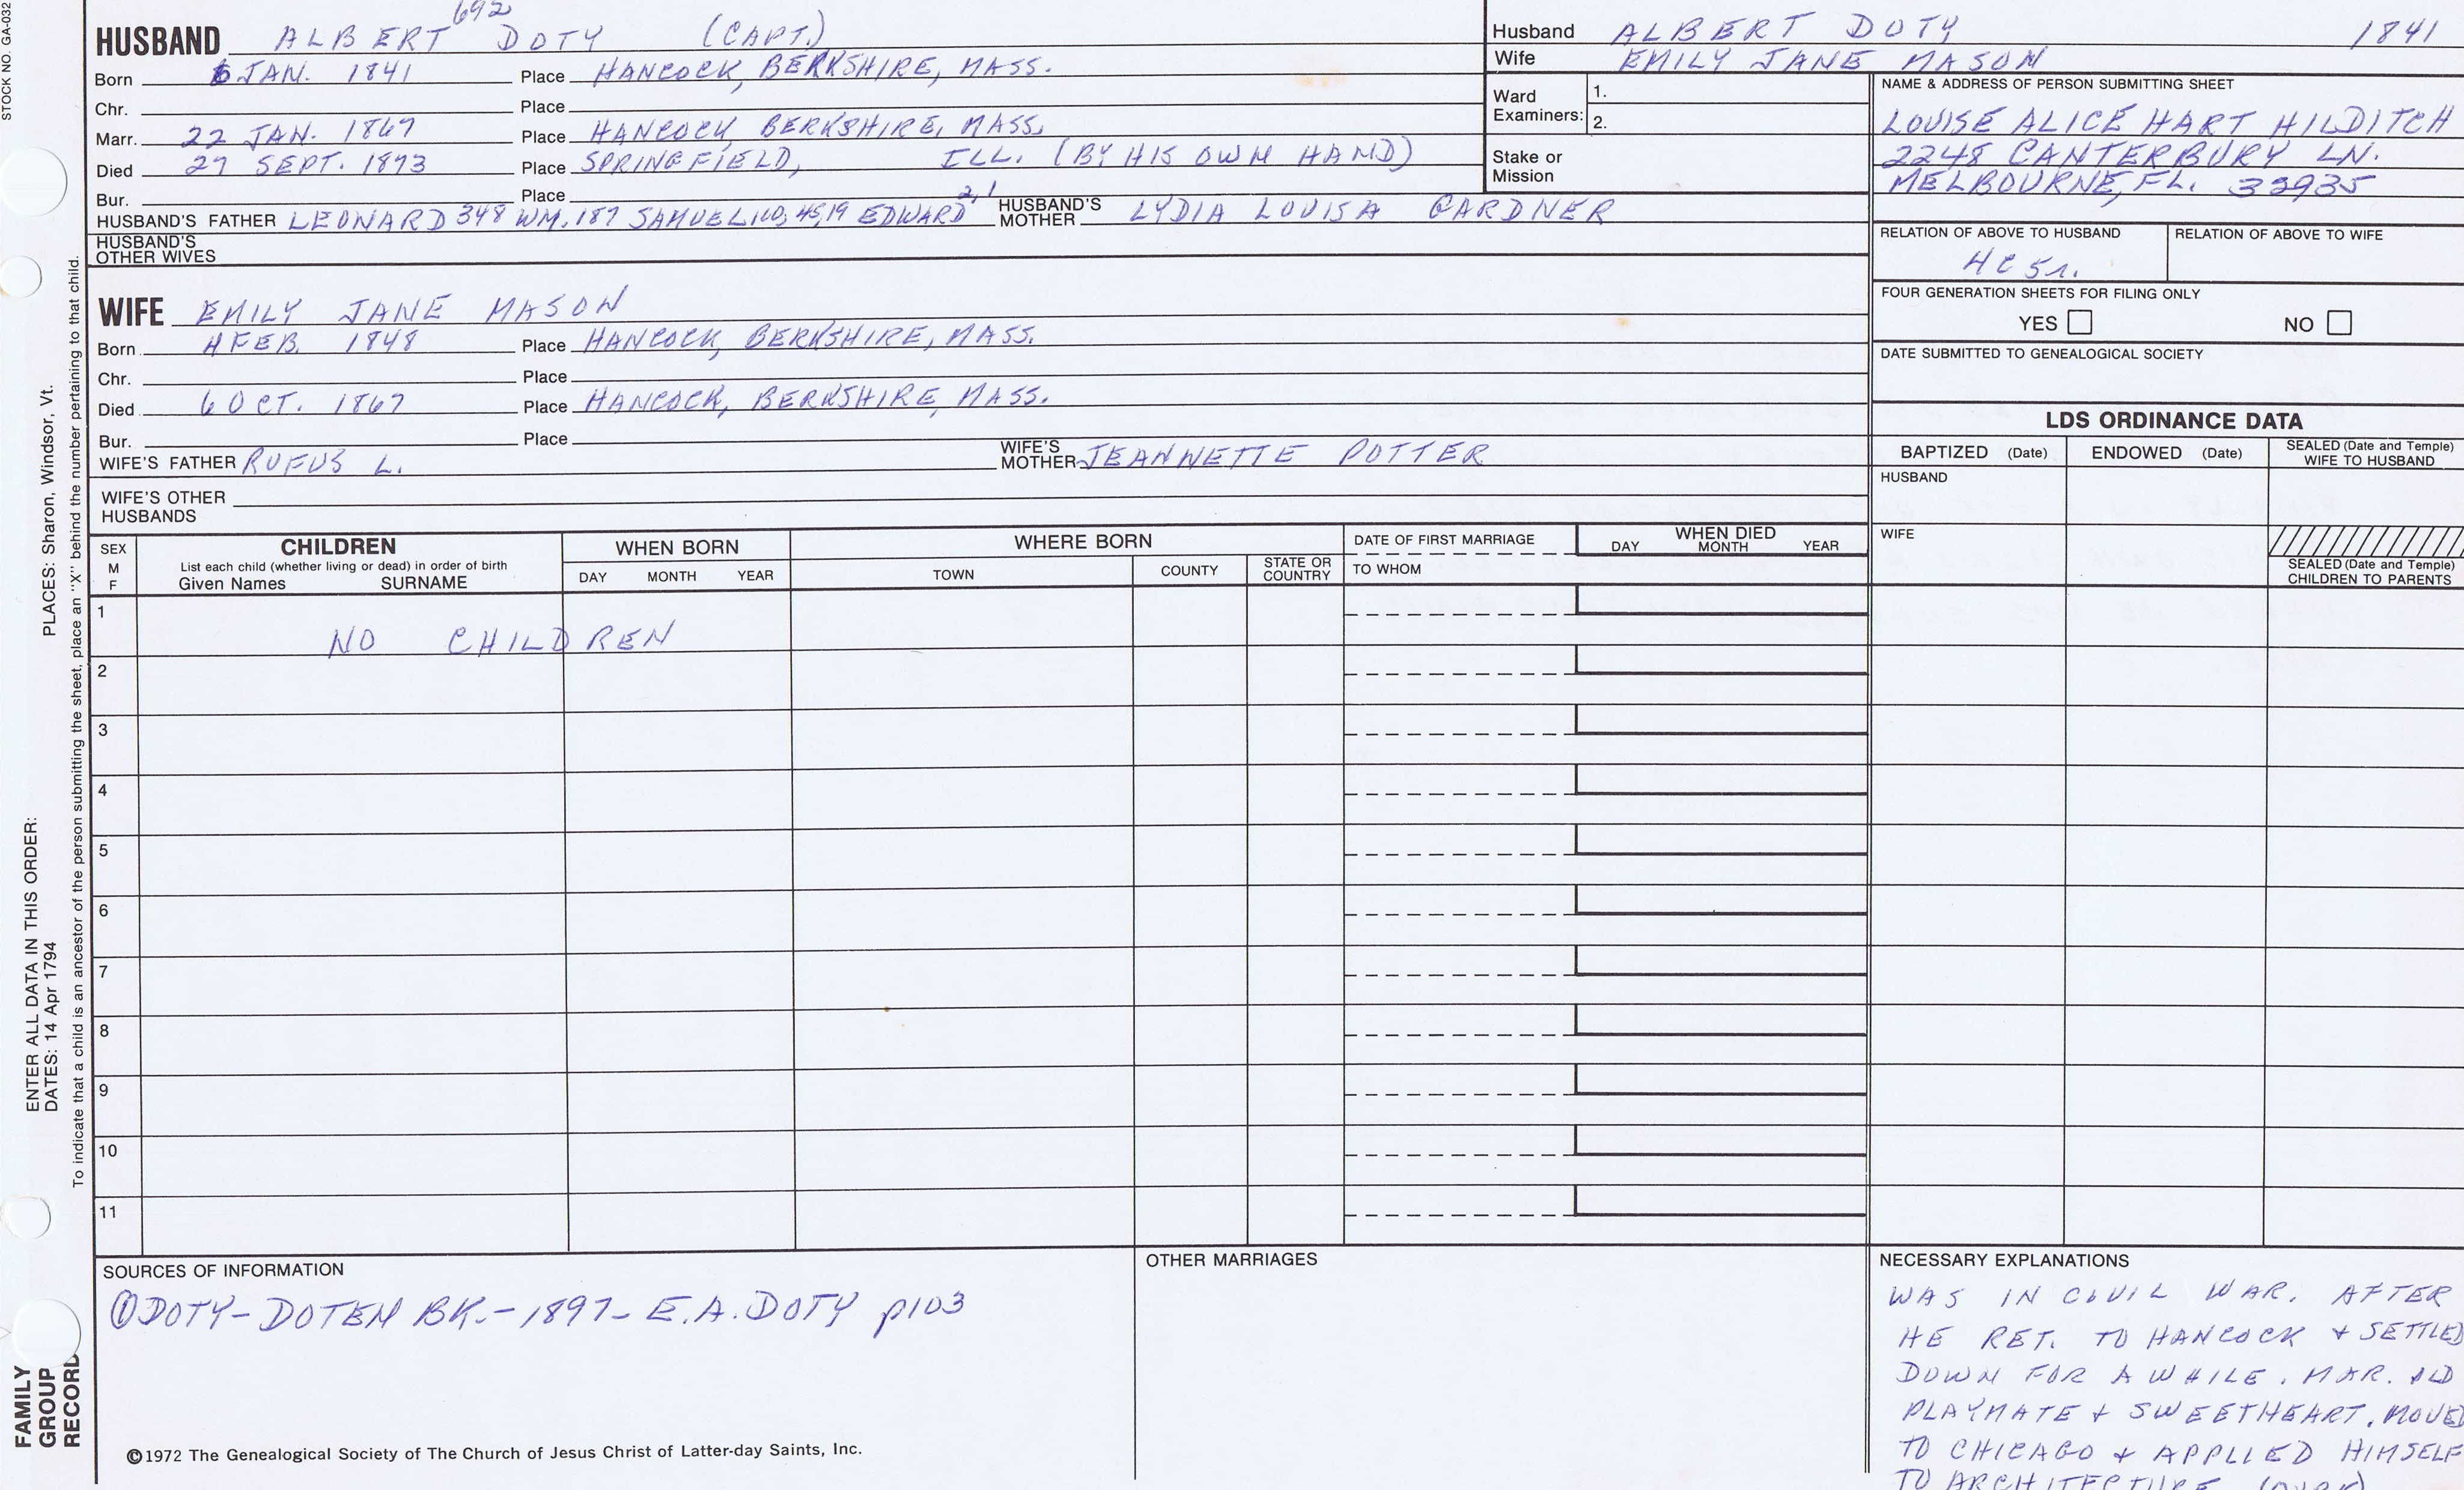 STOCK NO. GA-032
692
HUSBAND ALBERT DOTY (CAPT.)
Born 6 JAN. 1841 Place HANCOCK, BERKSHIRE, MASS.
Chr. Place
Marr. 22 JAN. 1867 Place HANCOCK, BERKSHIRE, MASS.
Died 27 SEPT. 1873 Place SPRINGFIELD, ILL. (BY HIS OWN HAND)
Bur. Place
HUSBAND'S FATHER LEONARD 348 WM. 187 SAMUEL 45,19 EDWARD 2,1 HUSBAND'S MOTHER LYDIA LOUISA GARDNER
HUSBAND'S OTHER WIVES
WIFE EMILY JANE MASON
Born 4 FEB. 1848 Place HANCOCK, BERKSHIRE, MASS.
Chr. Place
Died 6 OCT. 1867 Place HANCOCK, BERKSHIRE, MASS.
Bur. Place
WIFE'S FATHER RUFUS L. WIFE'S MOTHER JEANNETTE POTTER
WIFE'S OTHER HUSBANDS
Husband ALBERT DOTY 1841
Wife EMILY JANE MASON
Ward Examiners: 1.
2.
Stake or Mission
NAME & ADDRESS OF PERSON SUBMITTING SHEET
LOUISE ALICE HART HILDITCH
2248 CANTERBURY LN.
MELBOURNE, FL. 32935
RELATION OF ABOVE TO HUSBAND RELATION OF ABOVE TO WIFE
4C 5r.
FOUR GENERATION SHEETS FOR FILING ONLY
YES NO
DATE SUBMITTED TO GENEALOGICAL SOCIETY
LDS ORDINANCE DATA
BAPTIZED (Date) ENDOWED (Date) SEALED (Date and Temple) WIFE TO HUSBAND
HUSBAND
WIFE
SEALED (Date and Temple) CHILDREN TO PARENTS
SEX M F
CHILDREN
List each child (whether living or dead) in order of birth
Given Names SURNAME
WHEN BORN
DAY MONTH YEAR
WHERE BORN
TOWN COUNTY STATE OR COUNTRY
DATE OF FIRST MARRIAGE
TO WHOM
WHEN DIED
DAY MONTH YEAR
1 NO CHILDREN
2
3
4
5
6
7
8
9
10
11
SOURCES OF INFORMATION
① DOTY-DOTEN BK.-1897- E.A. DOTY p103
©1972 The Genealogical Society of The Church of Jesus Christ of Latter-day Saints, Inc.
OTHER MARRIAGES
NECESSARY EXPLANATIONS
WAS IN CIVIL WAR. AFTER
HE RET. TO HANCOCK & SETTLED
DOWN FOR A WHILE. MAR. OLD
PLAYMATE & SWEETHEART. MOVED
TO CHICAGO & APPLIED HIMSELF
TO ARCHITECTURE (OVER)
ENTER ALL DATA IN THIS ORDER:
DATES: 14 Apr 1794
PLACES: Sharon, Windsor, Vt.
To indicate that a child is an ancestor of the person submitting the sheet, place an "X" behind the number pertaining to that child.
FAMILY
GROUP
RECORD